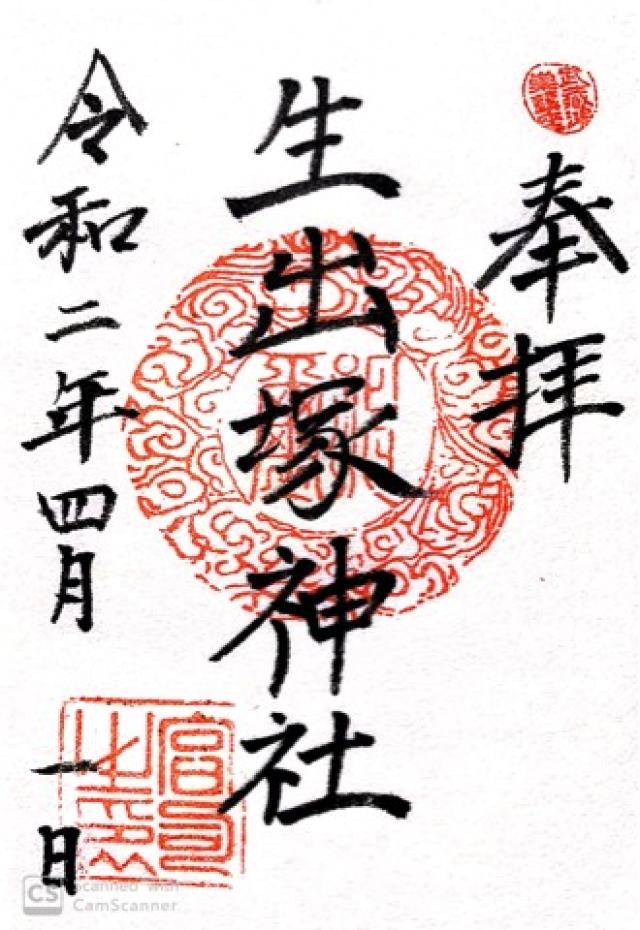 奉拝
生出塚神社
令和二年四月一日
宮司之印
CS Scanned with
CamScanner